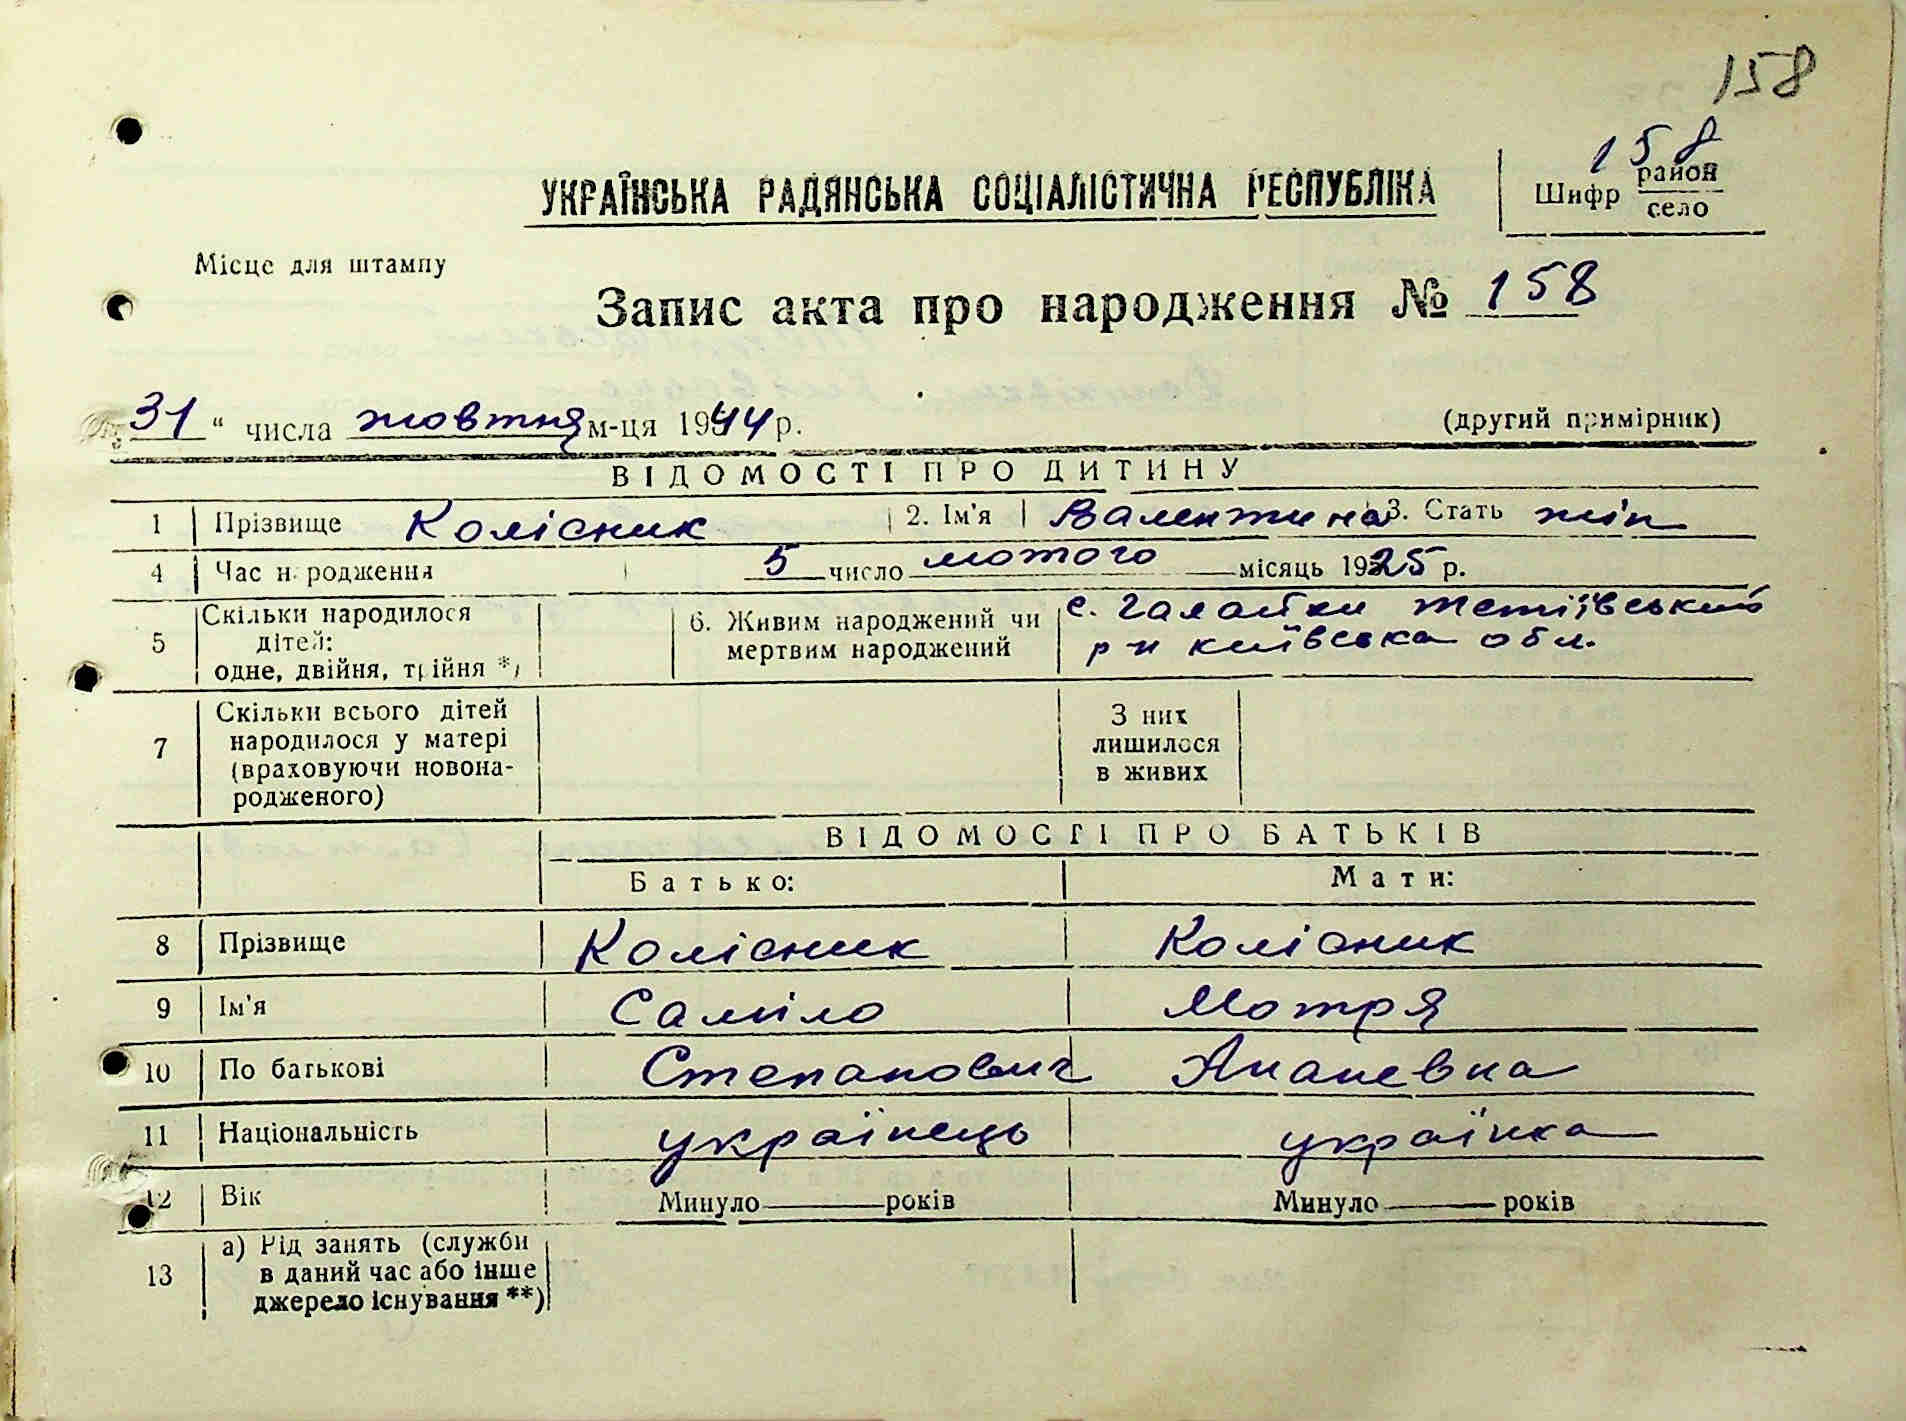 158
158
УКРАЇНСЬКА РАДЯНСЬКА СОЦІАЛІСТИЧНА РЕСПУБЛІКА
Шифр район
село
Місце для штампу
Запис акта про народження № 158
31 " числа жовтня м-ця 1944 р.
(другий примірник)
ВІДОМОСТІ ПРО ДИТИНУ
1 Прізвище Колісник 2. Ім'я Валентина 3. Стать жін
4 Час народження 5 число лютого місяць 1925 р.
5 Скільки народилося дітей: одне, двійня, трійня *)
6. Живим народжений чи мертвим народжений
с. Галайки тетіївський
р-н київська обл.
7 Скільки всього дітей народилося у матері (враховуючи новона-родженого)
З них лишилося в живих
ВІДОМОСТІ ПРО БАТЬКІВ
Батько: Мати:
8 Прізвище Колісник Колісник
9 Ім'я Саміло Мотря
10 По батькові Степанович Ананевна
11 Національність українець українка
12 Вік Минуло років Минуло років
13 а) Рід занять (служби
в даний час або інше
джерело існування **)